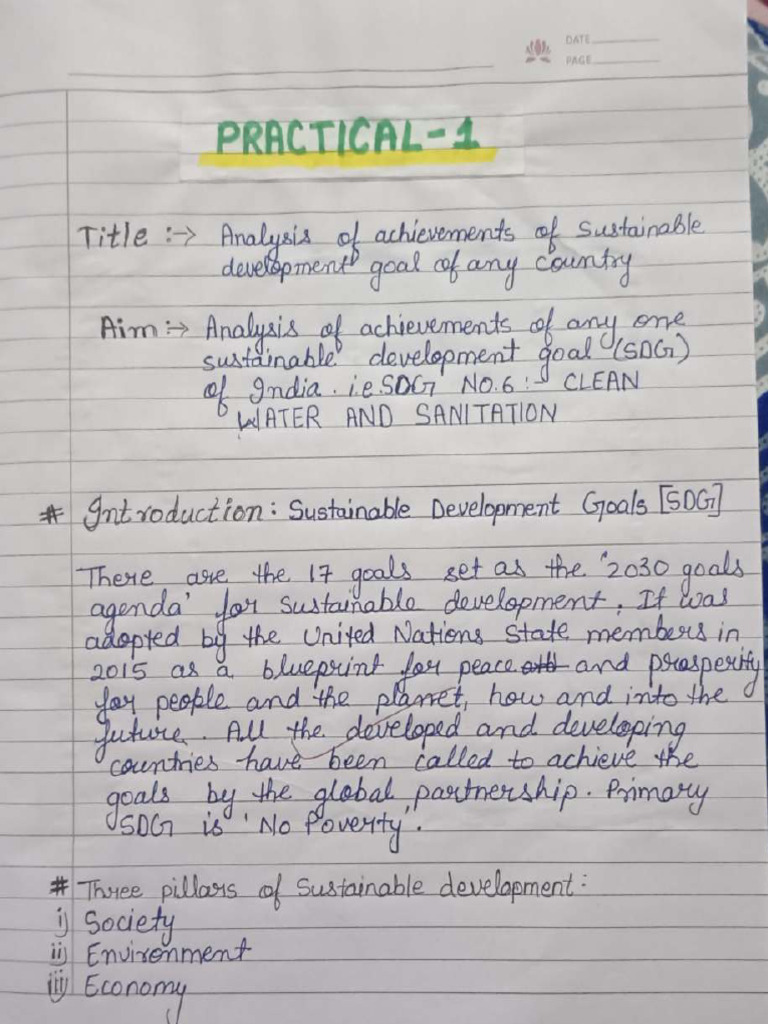 DATE
PAGE
PRACTICAL-1
Title :→ Analysis of achievements of sustainable
development goal of any country
Aim :→ Analysis of achievements of any one
sustainable development goal (SDG)
of India. i.e. SDG NO.6 :→ CLEAN
WATER AND SANITATION
# Introduction: Sustainable Development Goals [SDG]
There are the 17 goals set as the '2030 goals
agenda' for sustainable development. It was
adopted by the United Nations State members in
2015 as a blueprint for peace and prosperity
for people and the planet, how and into the
future. All the developed and developing
countries have been called to achieve the
goals by the global partnership. Primary
SDG is 'No Poverty'.
# Three pillars of sustainable development:
i) Society
ii) Environment
iii) Economy